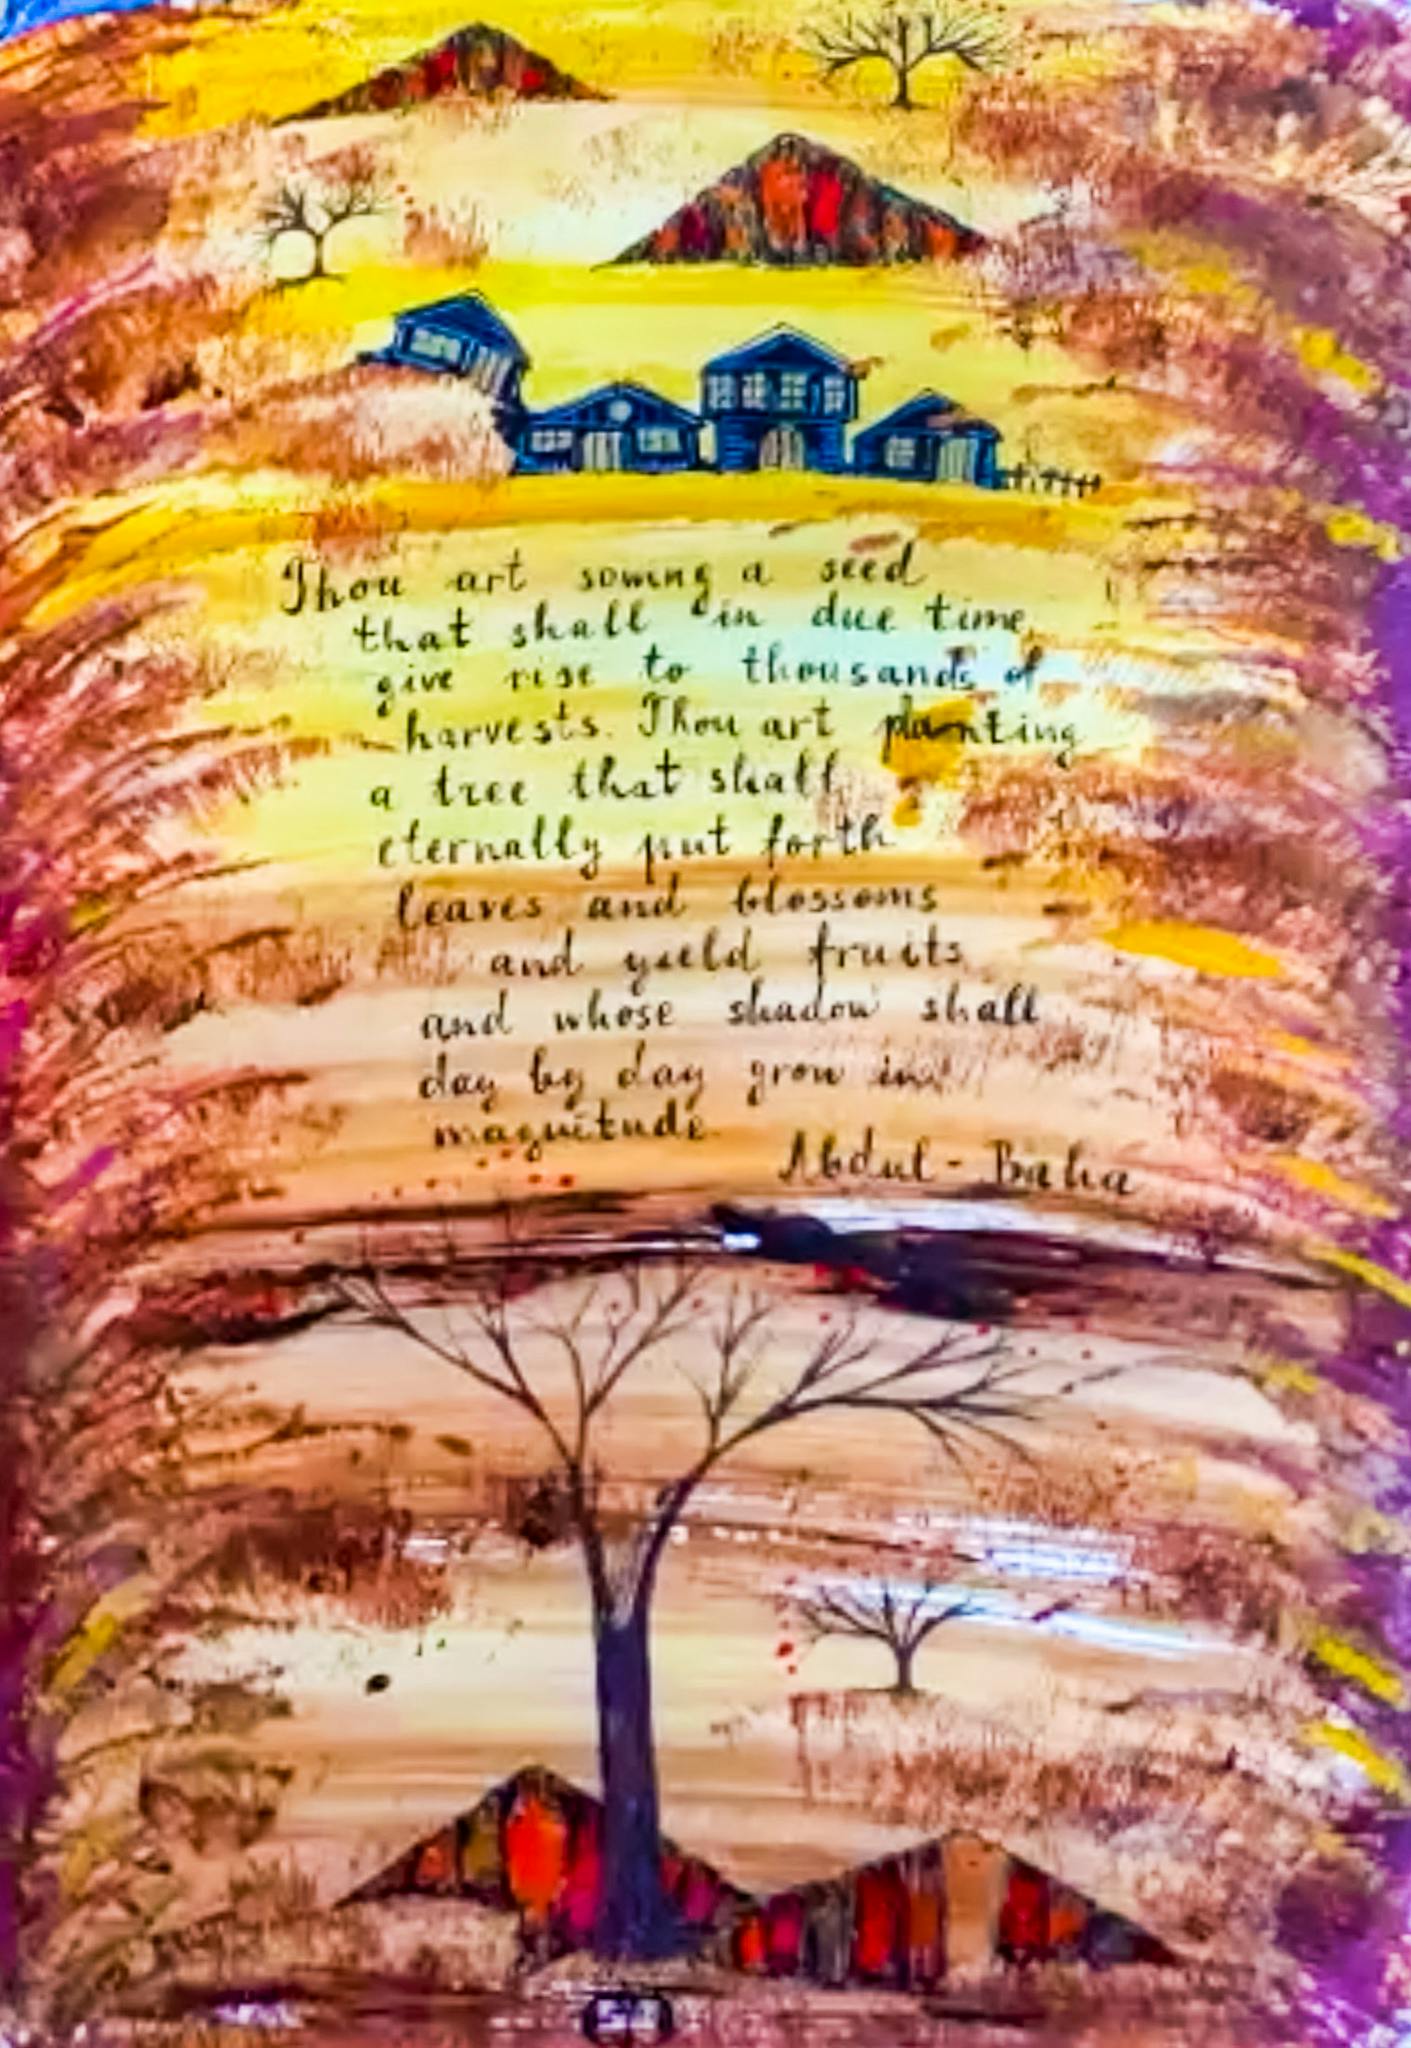 Thou art sowing a seed
that shall in due time
give rise to thousands of
harvests. Thou art planting
a tree that shall
eternally put forth
leaves and blossoms
and yield fruits
and whose shadow shall
day by day grow in
magnitude.
Abdul-Baha